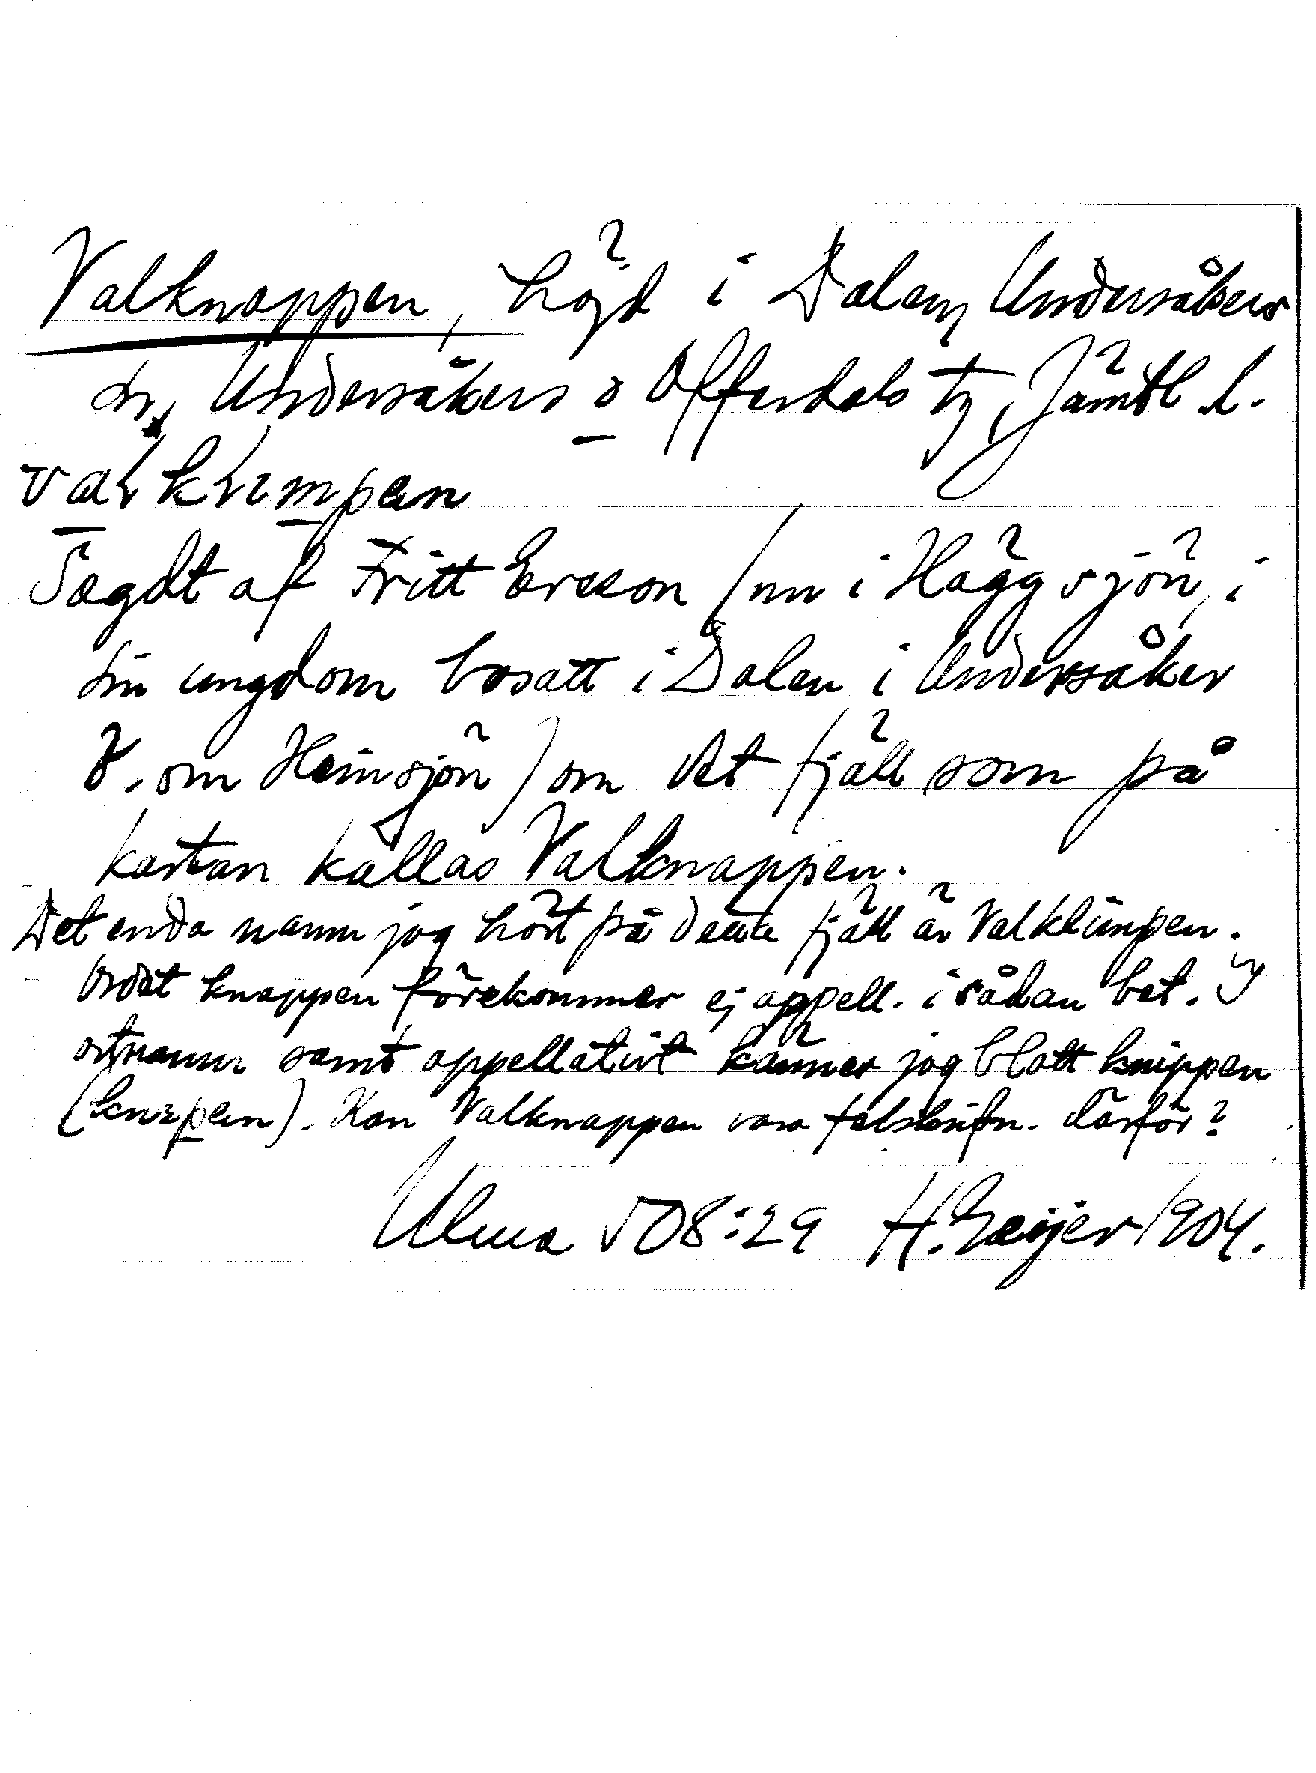 Valknappen, höjd i Dalen, Undersåkers
sn, Undersåkers o Offerdals tg, Jämtl. l.
valklimpen
Sagdt af Fritt Ersson (nu i Häggsjön, i
sin ungdom bosatt i Dalen i Undersåker
V. om Heinsjön) om det fjäll som på
kartan kallas Valknappen.
Det enda namn jag hört på detta fjäll är Valklimpen.
Ordet knappen förekommer ej appell. i sådan bet. I
ortnamn samt appellativt känner jag blott knippen
(knipen). Kan Valknappen vara felskrifn. därför?
Ulma 508:29 H. Geijer 1904.